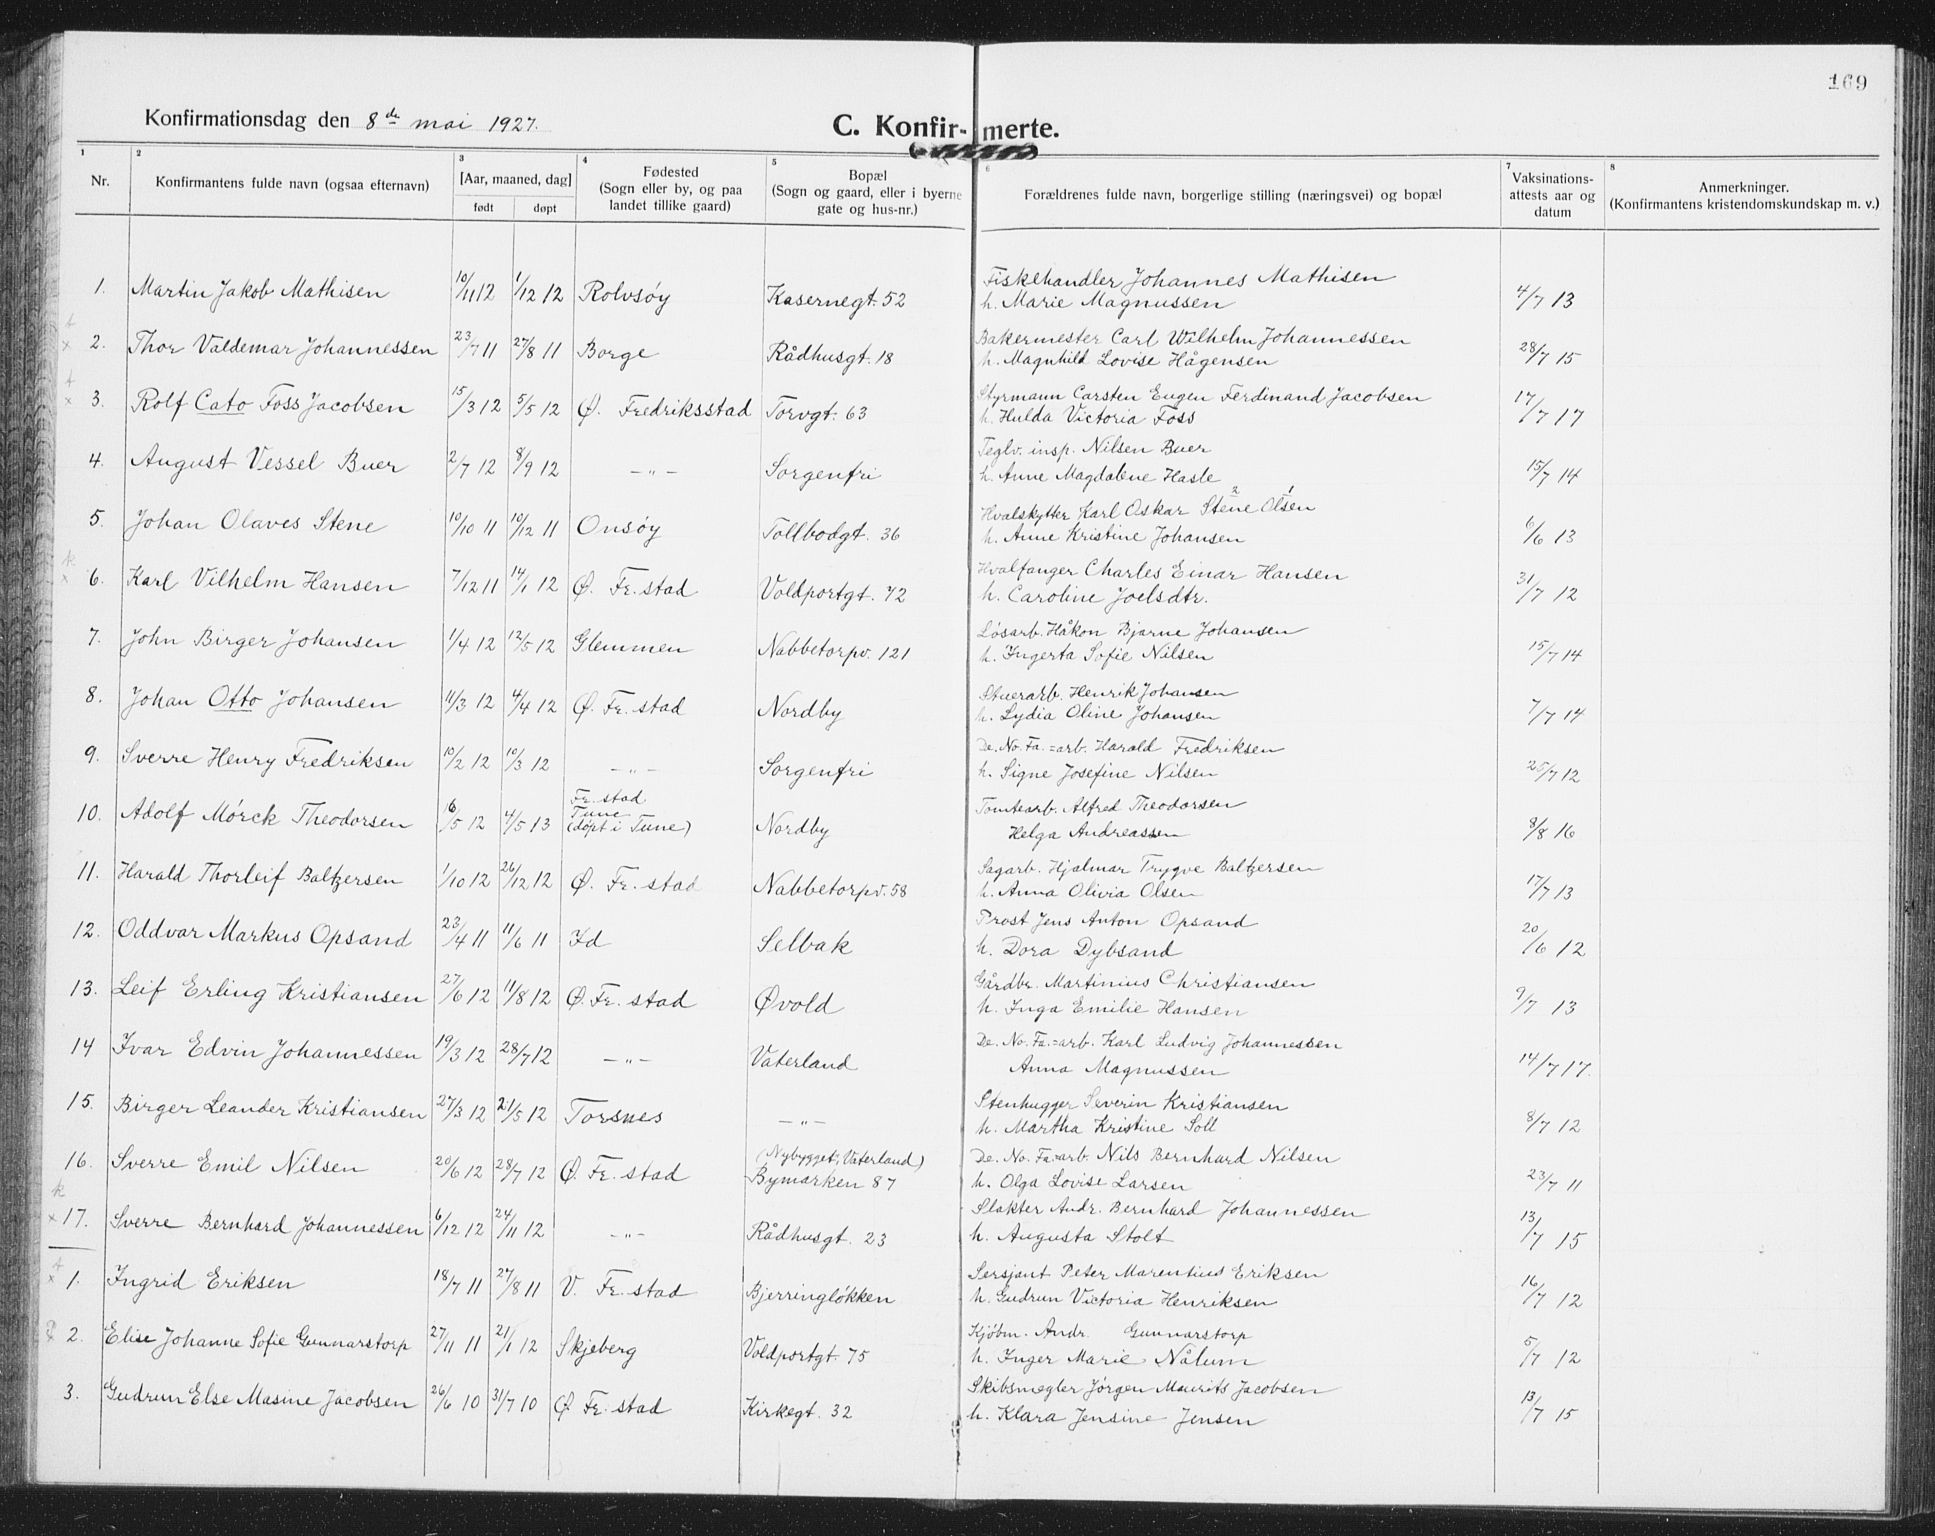 169
Konfirmationsdag den 8de mai 1927.
C. Konfirmerte.
1 2 3 4 5 6 7 8
Nr.
Konfirmantens fulde navn (ogsaa efternavn)
[Aar, maaned, dag]
født døpt
Fødested
(Sogn eller by, og paa
landet tillike gaard)
Bopæl
(Sogn og gaard, eller i byerne
gate og hus-nr.)
Forældrenes fulde navn, borgerlige stilling (næringsvei) og bopæl
Vaksinations-
attests aar og
datum
Anmerkninger.
(Konfirmantens kristendomskundskap m. v.)
1. Martin Jakob Mathisen 10/11 12 1/12 12 Rolvsøy Kasernegt. 52 Fiskehandler Johannes Mathisen
h. Marie Magnussen 4/7 13
2. Thor Valdemar Johannessen 23/7 11 27/8 11 Borge Rådhusgt. 18 Bakermester Carl Wilhelm Johannessen
h. Magnhild Lovise Hågensen 28/7 15
3. Rolf Cato Foss Jacobsen 15/3 12 5/5 12 Ø. Fredriksstad Torvgt. 63 Styrmann Carsten Eugen Ferdinand Jacobsen
h. Hulda Victoria Foss 17/7 17
4. August Vessel Buer 2/7 12 8/9 12 –"– Sorgenfri Teglv. insp. Nilsen Buer
h. Anne Magdalene Hasle 15/7 14
5. Johan Olaves Stene 10/10 11 10/12 11 Onsøy Tollbodgt. 36 Hvalskytter Karl Oskar Stene 2 Olsen 1
h. Anne Kristine Johansen 6/6 13
6. Karl Vilhelm Hansen 7/12 11 14/1 12 Ø. Fr. stad Voldportgt. 72 Hvalfanger Charles Einar Hansen
h. Caroline Joelsdtr. 31/7 12
7. John Birger Johansen 1/4 12 12/5 12 Glemmen Nabbetorpv. 121 Løsarb. Håkon Bjarne Johansen
h. Ingerta Sofie Nilsen 15/7 14
8. Johan Otto Johansen 11/3 12 4/4 12 Ø. Fr. stad Nordby Stuerarb. Henrik Johansen
h. Lydia Oline Johansen 7/7 14
9. Sverre Henry Fredriksen 10/2 12 10/3 12 –"– Sorgenfri De. No. Fa.=arb. Harald Fredriksen
h. Signe Josefine Nilsen 25/7 12
10. Adolf Mørck Theodorsen 16/5 12 4/5 13 Fr. stad
Tune
(døpt i Tune) Nordby Tomtearb. Alfred Theodorsen
Helga Andreassen 8/8 16
11. Harald Thorleif Baltzersen 1/10 12 26/12 12 Ø. Fr. stad Nabbetorpv. 58 Sagarb. Hjalmar Trygve Baltzersen
h. Anna Olivia Olsen 17/7 13
12. Oddvar Markus Opsand 23/4 11 11/6 11 Id Selbak Prost Jens Anton Opsand
h. Dora Dybsand 20/6 12
13. Leif Erling Kristiansen 27/6 12 11/8 12 Ø. Fr. stad Øvold Gårdbr. Martinius Christiansen
h. Inga Emilie Hansen 9/7 13
14 Ivar Edvin Johannessen 19/3 12 28/7 12 –"– Vaterland De. No. Fa.=arb. Karl Ludvig Johannessen
Anna Magnussen 14/7 17.
15. Birger Leander Kristiansen 27/3 12 21/5 12 Torsnes –"– Stenhugger Severin Kristiansen
h. Martha Kristine Soll 8/7 12
16. Sverre Emil Nilsen 20/6 12 28/7 12 Ø. Fr. stad (Nybygget, Vaterland)
Bymarken 87 De. No. Fa.=arb. Nils Bernhard Nilsen
h. Olga Lovise Larsen 23/7 11
17. Sverre Bernhard Johannessen 6/12 12 24/11 12 –"– Rådhusgt. 23 Slakter Andr. Bernhard Johannessen
h. Augusta Stolt 13/7 15
1. Ingrid Eriksen 18/7 11 27/8 11 V. Fr. stad Bjerringløkken Sersjant Peter Marentius Eriksen
h. Gudrun Victoria Henriksen 16/7 12
2. Elise Johanne Sofie Gunnarstorp 27/11 11 21/1 12 Skjeberg Voldportgt. 75 Kjøbm. Andr. Gunnarstorp
h. Inger Marie Nålum 5/7 12
3. Gudrun Else Masine Jacobsen 26/6 10 31/7 10 Ø Fr. stad Kirkegt. 32 Skibsmegler Jørgen Maurits Jacobsen
h. Klara Jensine Jensen 13/7 15